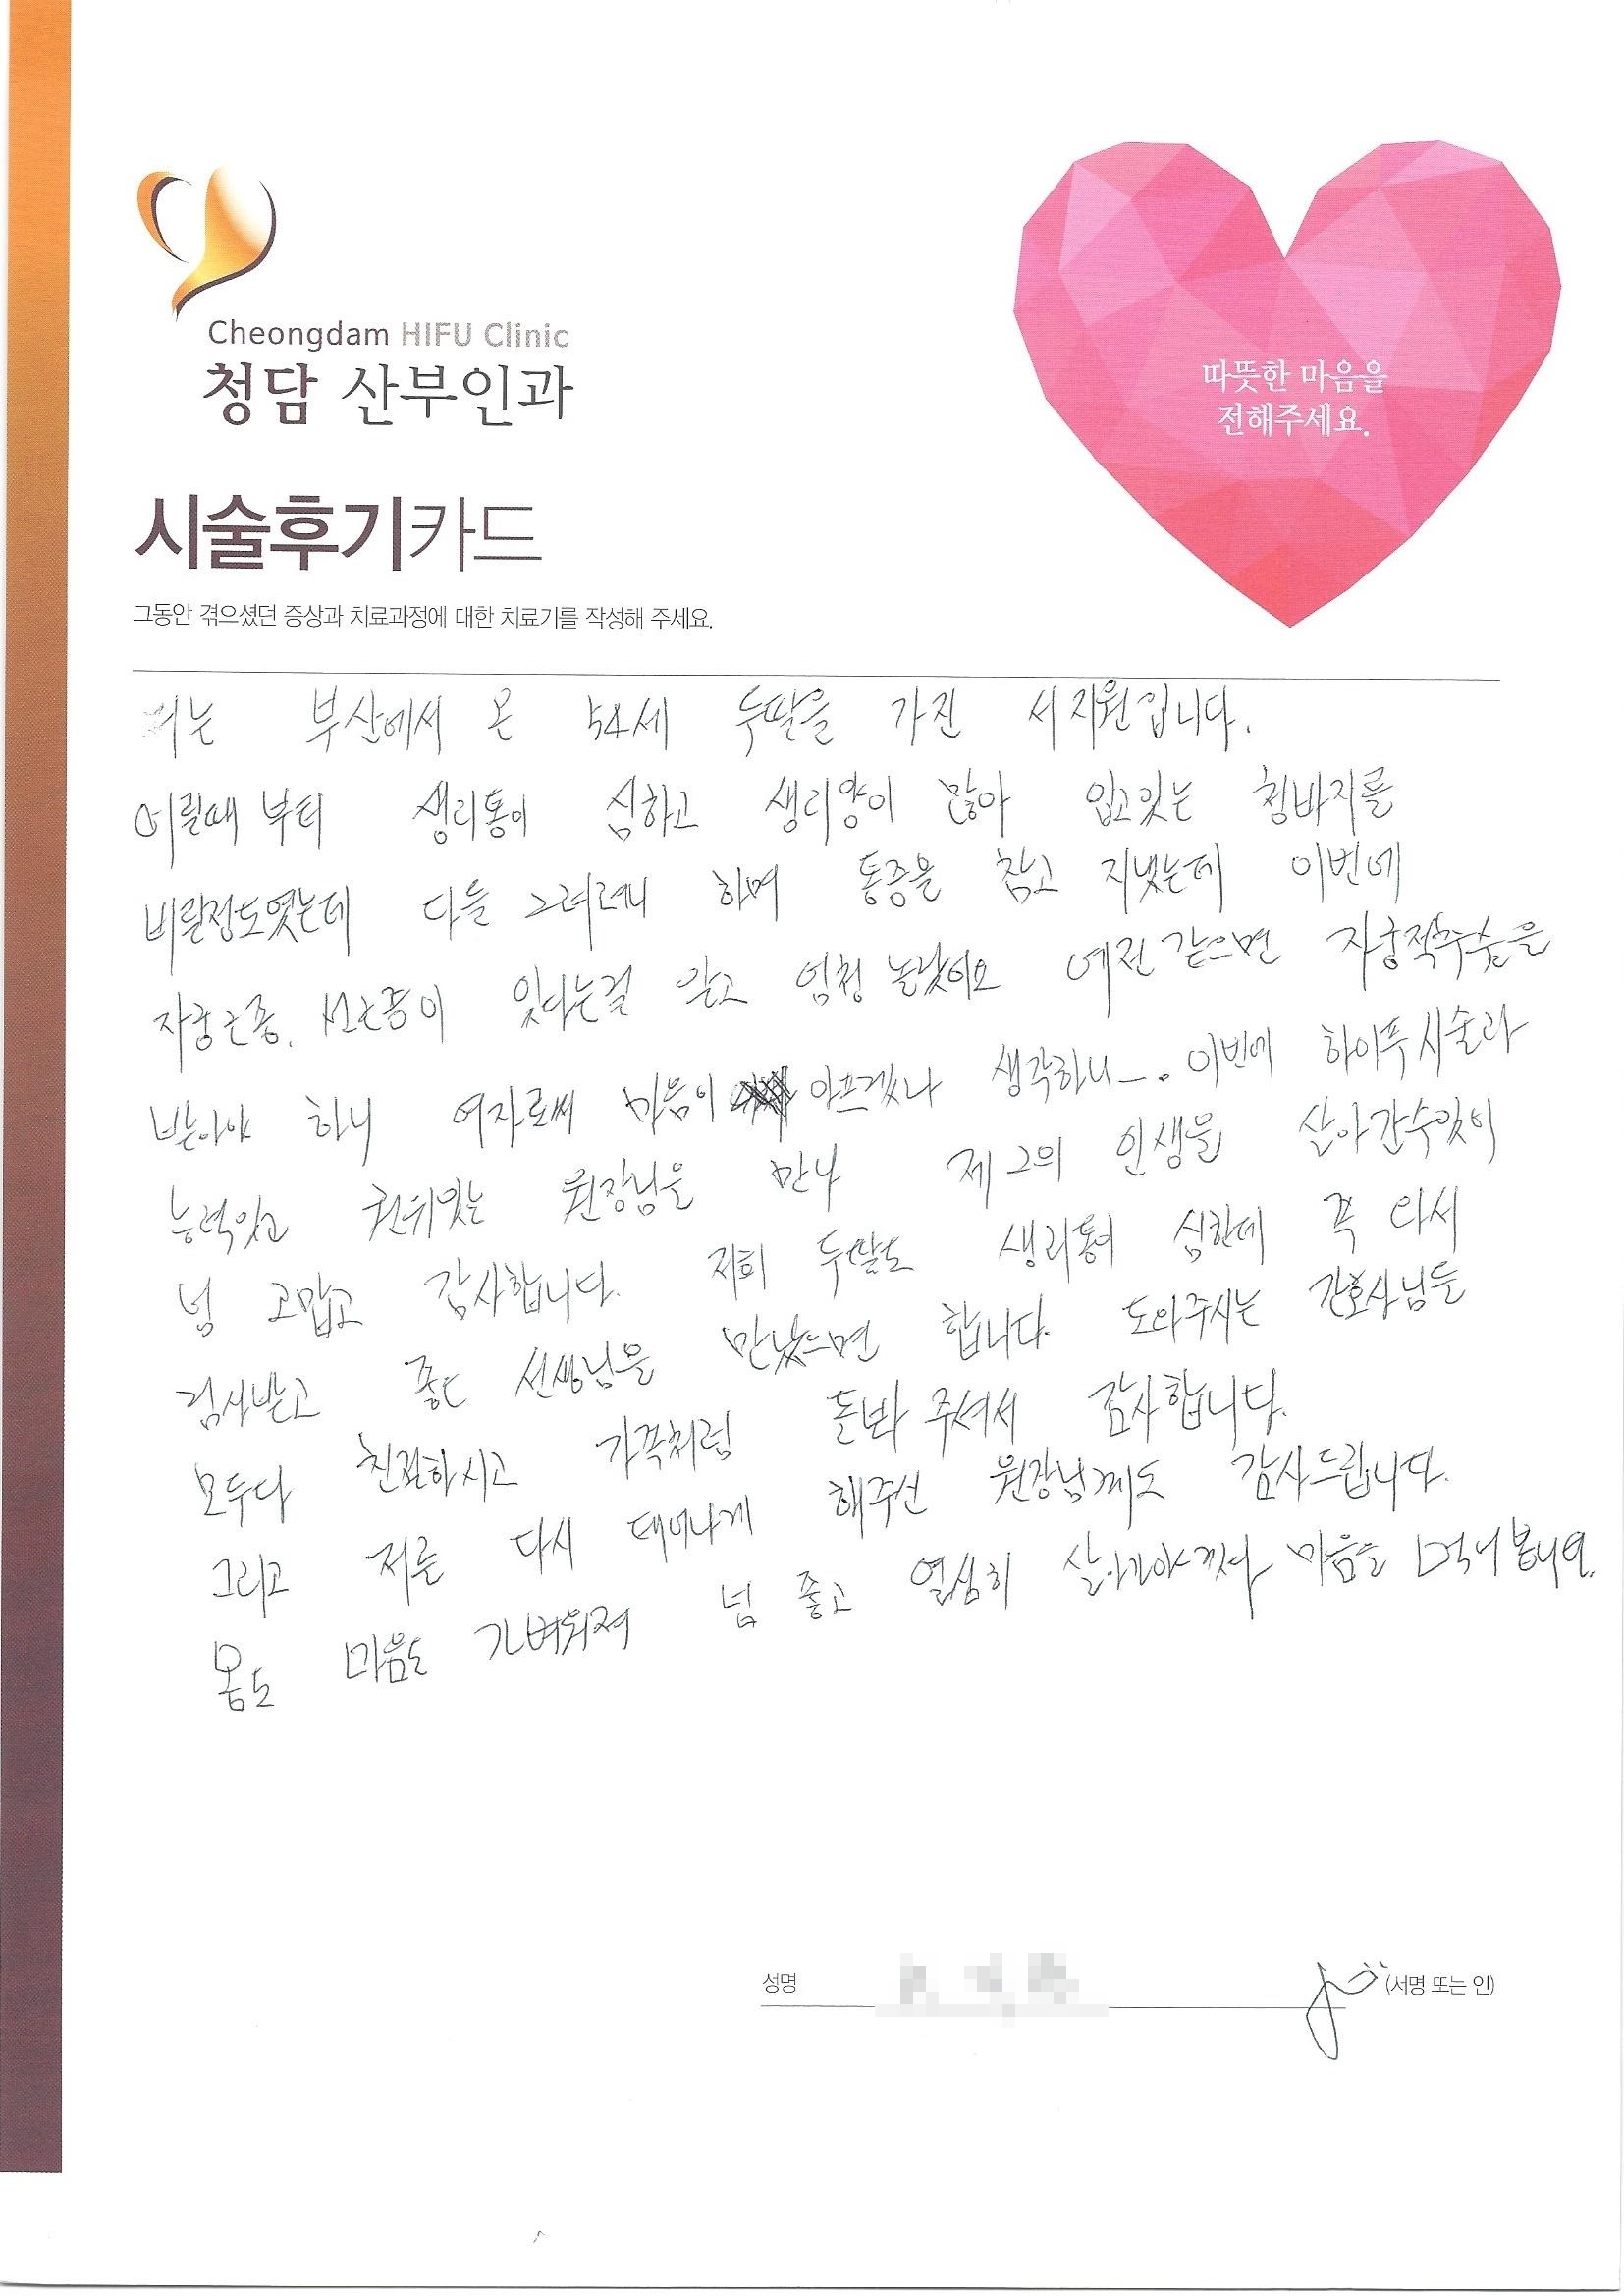 Cheongdam HIFU Clinic
청담 산부인과
따뜻한 마음을
전해주세요.
시술후기카드
그동안 겪으셨던 증상과 치료과정에 대한 치료기를 작성해 주세요.
저는 부산에서 온 54세 두딸을 가진 서지원입니다.
어릴때 부터 생리통이 심하고 생리양이 많아 입고있는 청바지를
버릴정도였는데 다들 그러려니 하며 통증을 참고 지냈는데 이번에
자궁근종. 선근증이 있다는걸 알고 엄청 놀랐어요 예전 같으면 자궁적출술을
받아야 하니 여자로써 마음이 아프겠나 생각하니-. 이번에 하이푸시술과
능력있고 권위있는 원장님을 만나 제2의 인생을 살아갈수있어
넘 고맙고 감사합니다. 저희 두딸도 생리통이 심한데 꼭 와서
검사받고 좋은 선생님을 만났으면 합니다. 도와주시는 간호사님들
모두다 친절하시고 가족처럼 돌봐 주셔서 감사합니다.
그리고 저를 다시 태어나게 해주신 원장님께도 감사드립니다.
몸도 마음도 가벼워져 넘 좋고 열심히 살아가야겠다 마음을
성명
(서명 또는 인)